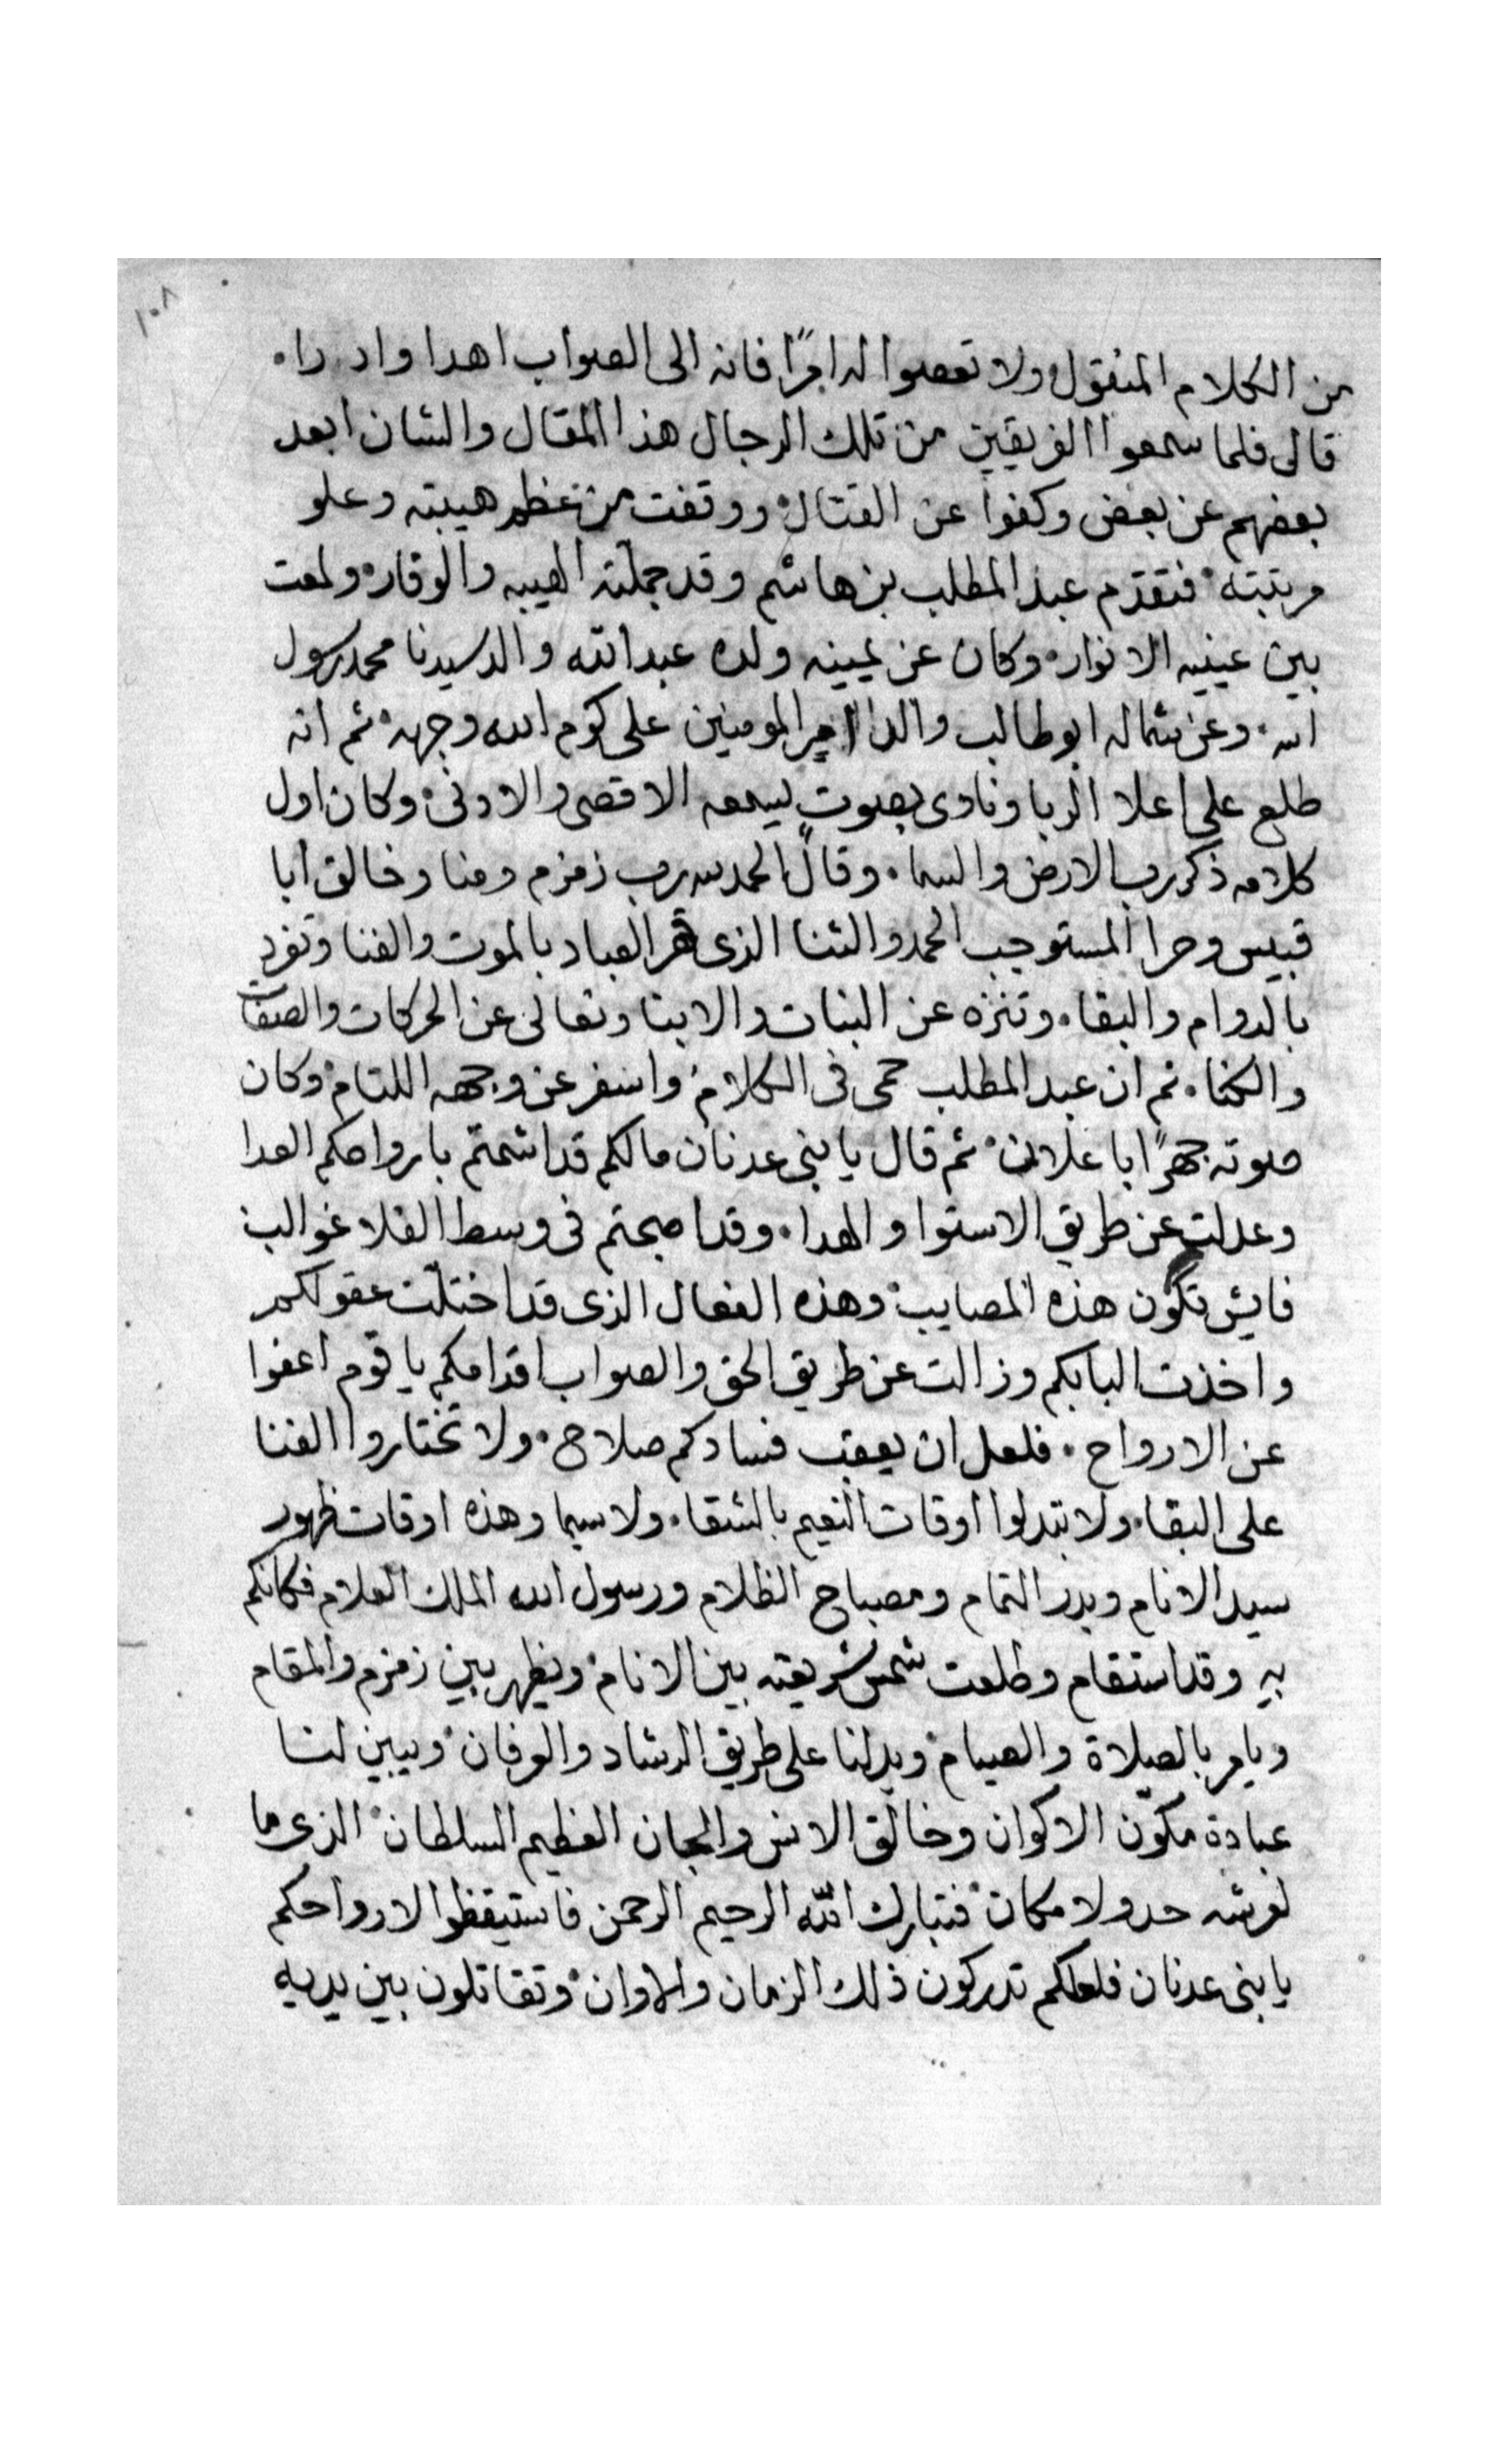 ١٠٨
من الكلام المنقول ولا تعصوا له امرًا فانه الى الصواب اهدا وادرا.
قال فلما سمعوا الفريقين من تلك الرجال هذا المقال والشان ابعد
بعضهم عن بعض وكفوا عن القتال ووقفت من عظم هيبته وعلو
مرتبته فتقدم عبد المطلب بن هاشم وقد جملته الهيبه والوقار ولمعت
بين عينيه الانوار وكان عن يمينه ولده عبد الله والد سيدنا محمد رسول
الله وعن شماله ابو طالب والد امير المومنين على كرم الله وجهه ثم انه
طلع على اعلا الربا ونادى بصوت يسمعه الاقصى والادنى وكان اول
كلامه ذكر رب الارض والسما. وقال الحمد لله رب زمزم ومنا وخالق ابا
قبيس وحرا المستوجب الحمد والثنا الذى قهر العباد بالموت والفنا وتفرد
بالدوام والبقا. وتنزه عن البنات والابنا وتعالى عن الحركات والصفات
والكنا. ثم ان عبد المطلب حمى فى الكلام واسفر عن وجهه اللتام وكان
صوته جهرًا باعلان ثم قال يا بنى عدنان مالكم قد اشمتم بارواحكم العدا
وعدلتم عن طريق الاستوا والهدا. وقد اصبحتم فى وسط الفلا غوالب
فايش تكون هذه المصايب وهذه الفعال الذى قد اختلت عقولكم
واخذت البابكم وزالت عن طريق الحق والصواب اقدامكم يا قوم اعفوا
عن الارواح. فلعل ان يعقب فسادكم صلاح. ولا تختاروا الفنا
على البقا. ولا تبدلوا اوقات النعيم بالشقا. ولا سيما وهذه اوقات ظهور
سيد الانام وبدر التمام ومصباح الظلام ورسول الله الملك العلام فكانكم
به وقد استقام وطلعت شمس شريعته بين الانام ويظهر بين زمزم والمقام
ويامر بالصلاة والصيام ويدلنا على طريق الرشاد والعرفان ويبين لنا
عبادة مكوّن الاكوان وخالق الانس والجان العظيم السلطان الذى ما
لعرشه حد ولا مكان فتبارك الله الرحيم الرحمن فاستيقظوا لارواحكم
يا بنى عدنان فلعلكم تدركون ذلك الزمان والاوان وتقاتلون بين يديه